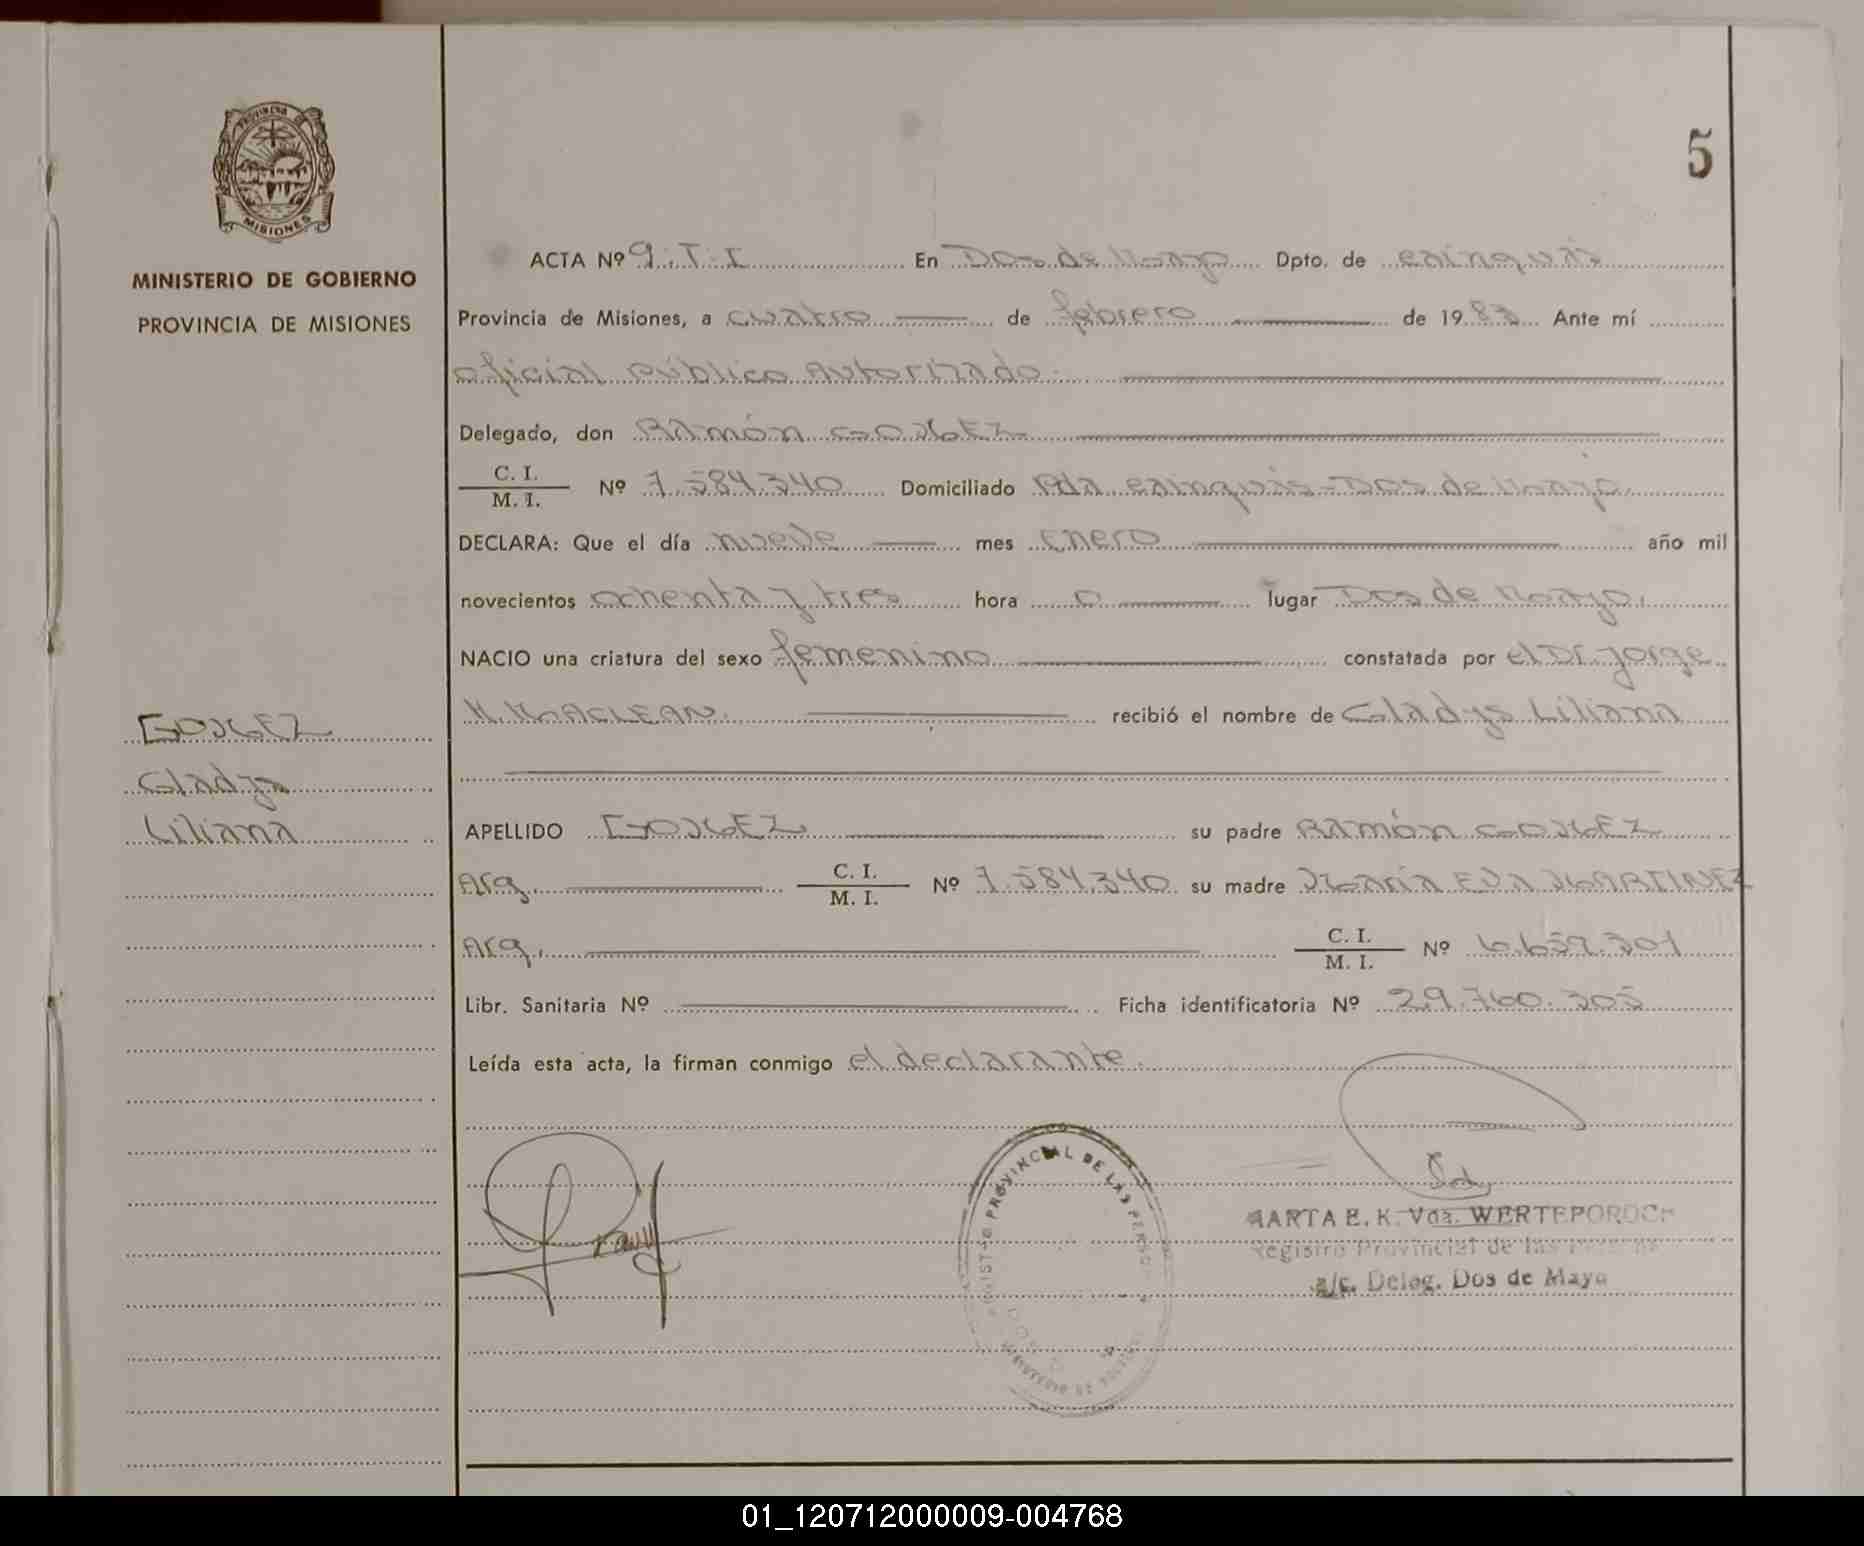 5
PROVINCIA DE
MISIONES
MINISTERIO DE GOBIERNO
PROVINCIA DE MISIONES
ACTA Nº 9.T.I En Dos de Mayo Dpto. de cainguás
Provincia de Misiones, a cuatro de febrero de 1983 Ante mí
oficial público Autorizado.
Delegado, don RAMÓN GOMEZ
C. I.
M. I. Nº 7.584.340 Domiciliado Pda cainguás-Dos de Mayo.
DECLARA: Que el día nueve mes enero año mil
novecientos ochenta y tres hora 0 lugar Dos de Mayo.
NACIO una criatura del sexo femenino constatada por el Dr. Jorge
M. MACLEAN. recibió el nombre de Gladys Liliana
GOMEZ
Gladys
Liliana
APELLIDO GOMEZ su padre RAMÓN GOMEZ
Arg. C. I.
M. I. Nº 7.584.340 su madre MARÍA EVA MARTINEZ
Arg. C. I.
M. I. Nº 6.657.301
Libr. Sanitaria Nº Ficha identificatoria Nº 29.760.305
Leída esta acta, la firman conmigo el declarante.
PROVINCIAL DE LAS PERSO
MARTA E. K. Vda. WERTEPOROCH
Registro Provincial de las
a/c. Deleg. Dos de Mayo
01_120712000009-004768